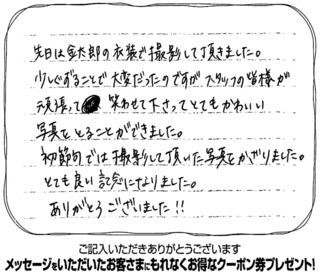 先日は金太郎の衣装で撮影して頂きました。
少しぐずることで大変だったのですが スタッフの皆様が
頑張って 笑わせて下さってとてもかわいい
写真をとることができました。
初節句では撮影して頂いた写真をかざりました。
とても良い記念になりました。
ありがとうございました!!
ご記入いただきありがとうございます
メッセージをいただいたお客さまにもれなくお得なクーポン券プレゼント!